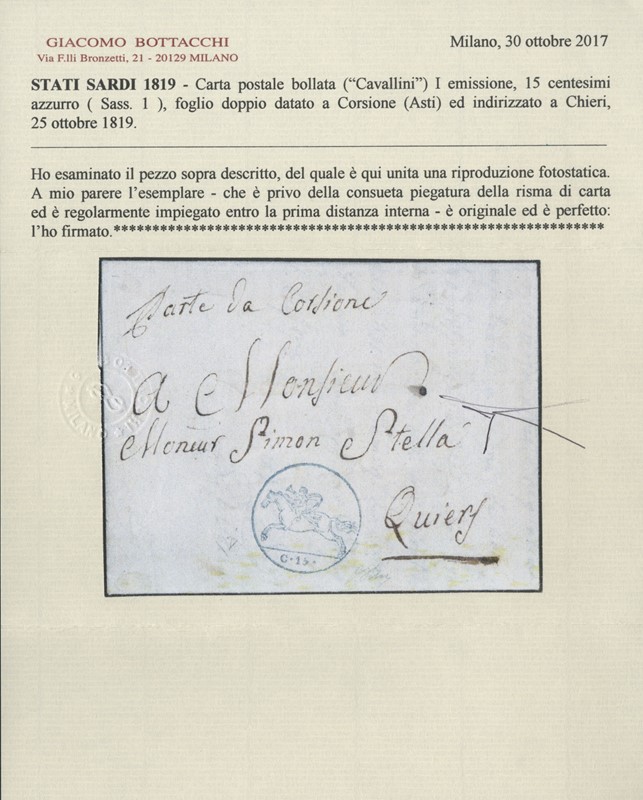 GIACOMO BOTTACCHI
Via F.lli Bronzetti, 21 - 20129 MILANO
Milano, 30 ottobre 2017
STATI SARDI 1819 - Carta postale bollata (“Cavallini”) I emissione, 15 centesimi
azzurro ( Sass. 1 ), foglio doppio datato a Corsione (Asti) ed indirizzato a Chieri,
25 ottobre 1819.
Ho esaminato il pezzo sopra descritto, del quale è qui unita una riproduzione fotostatica.
A mio parere l’esemplare - che è privo della consueta piegatura della risma di carta
ed è regolarmente impiegato entro la prima distanza interna - è originale ed è perfetto:
l’ho firmato.****************************************************************
Parte da Corsione
A Monsieur
Simon Stella
Quiers
C. 15.
MILANO